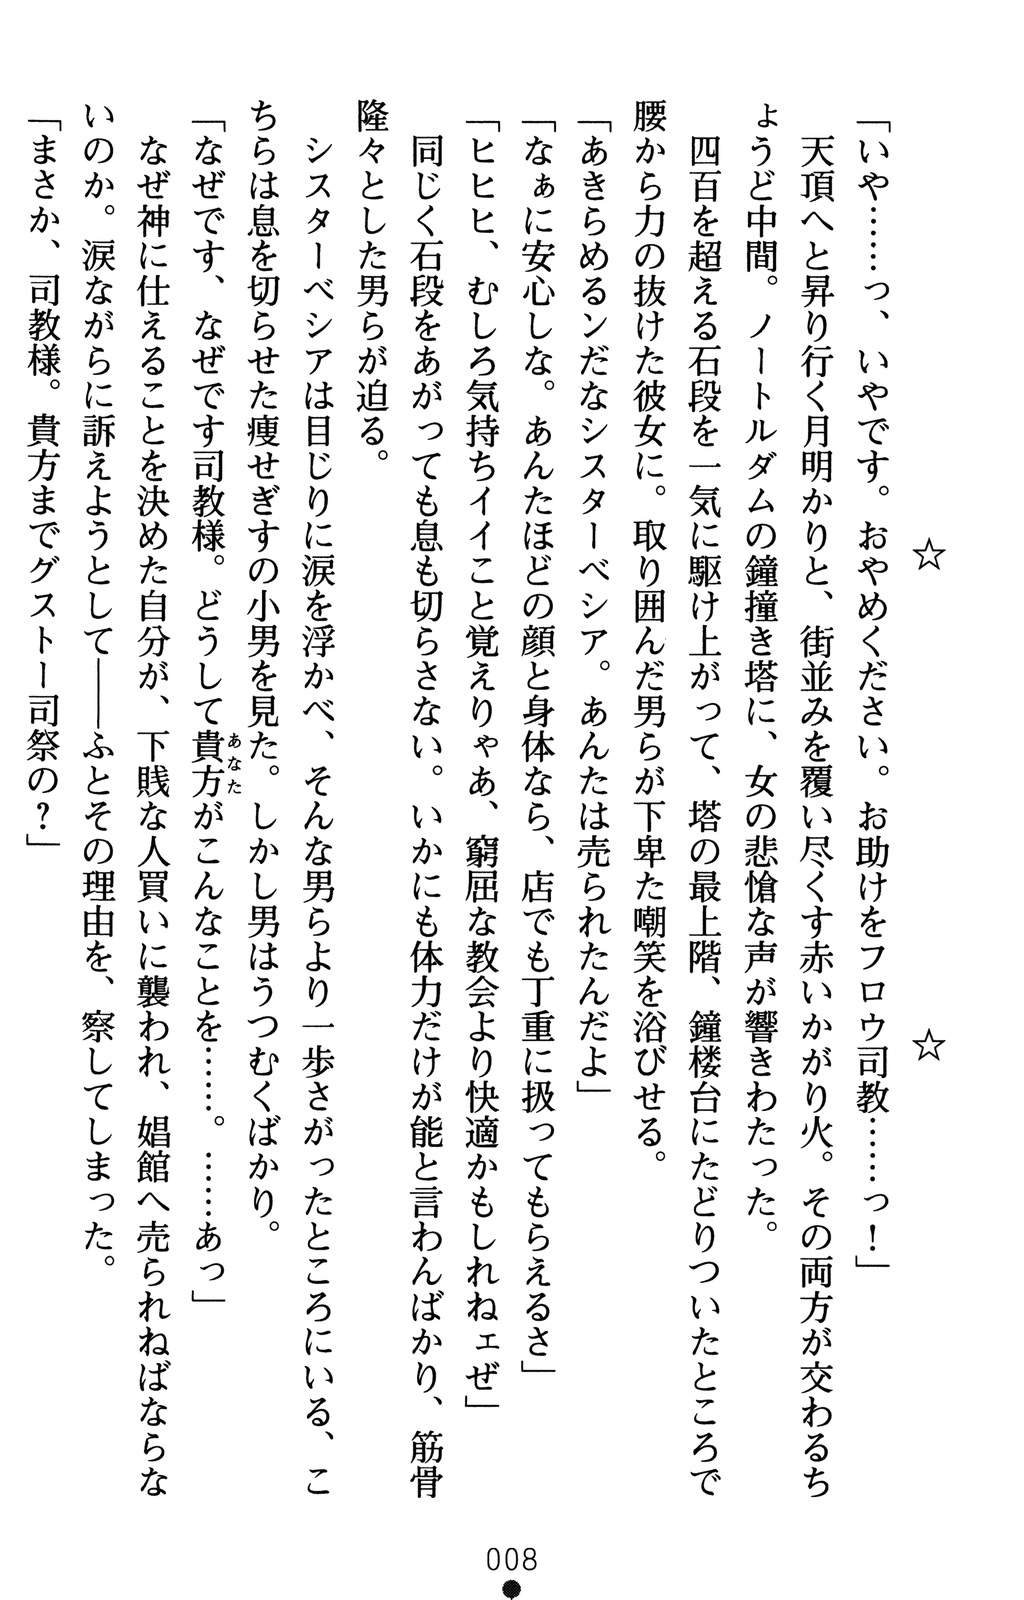 ☆　☆
「いや……っ、いやです。おやめください。お助けをフロウ司教……っ！」
　天頂へと昇り行く月明かりと、街並みを覆い尽くす赤いかがり火。その両方が交わるち
ょうど中間。ノートルダムの鐘撞き塔に、女の悲愴な声が響きわたった。
　四百を超える石段を一気に駆け上がって、塔の最上階、鐘楼台にたどりついたところで
腰から力の抜けた彼女に。取り囲んだ男らが下卑た嘲笑を浴びせる。
「あきらめるンだなシスターベシア。あんたは売られたんだよ」
「なぁに安心しな。あんたほどの顔と身体なら、店でも丁重に扱ってもらえるさ」
「ヒヒヒ、むしろ気持ちイイこと覚えりゃあ、窮屈な教会より快適かもしれねェぜ」
　同じく石段をあがっても息も切らさない。いかにも体力だけが能と言わんばかり、筋骨
隆々とした男らが迫る。
　シスターベシアは目じりに涙を浮かべ、そんな男らより一歩さがったところにいる、こ
ちらは息を切らせた痩せぎすの小男を見た。しかし男はうつむくばかり。
「なぜです、なぜです司教様。どうして貴方あなたがこんなことを……。……あっ」
　なぜ神に仕えることを決めた自分が、下賎な人買いに襲われ、娼館へ売られねばならな
いのか。涙ながらに訴えようとして――ふとその理由を、察してしまった。
「まさか、司教様。貴方までグストー司祭の？」
008